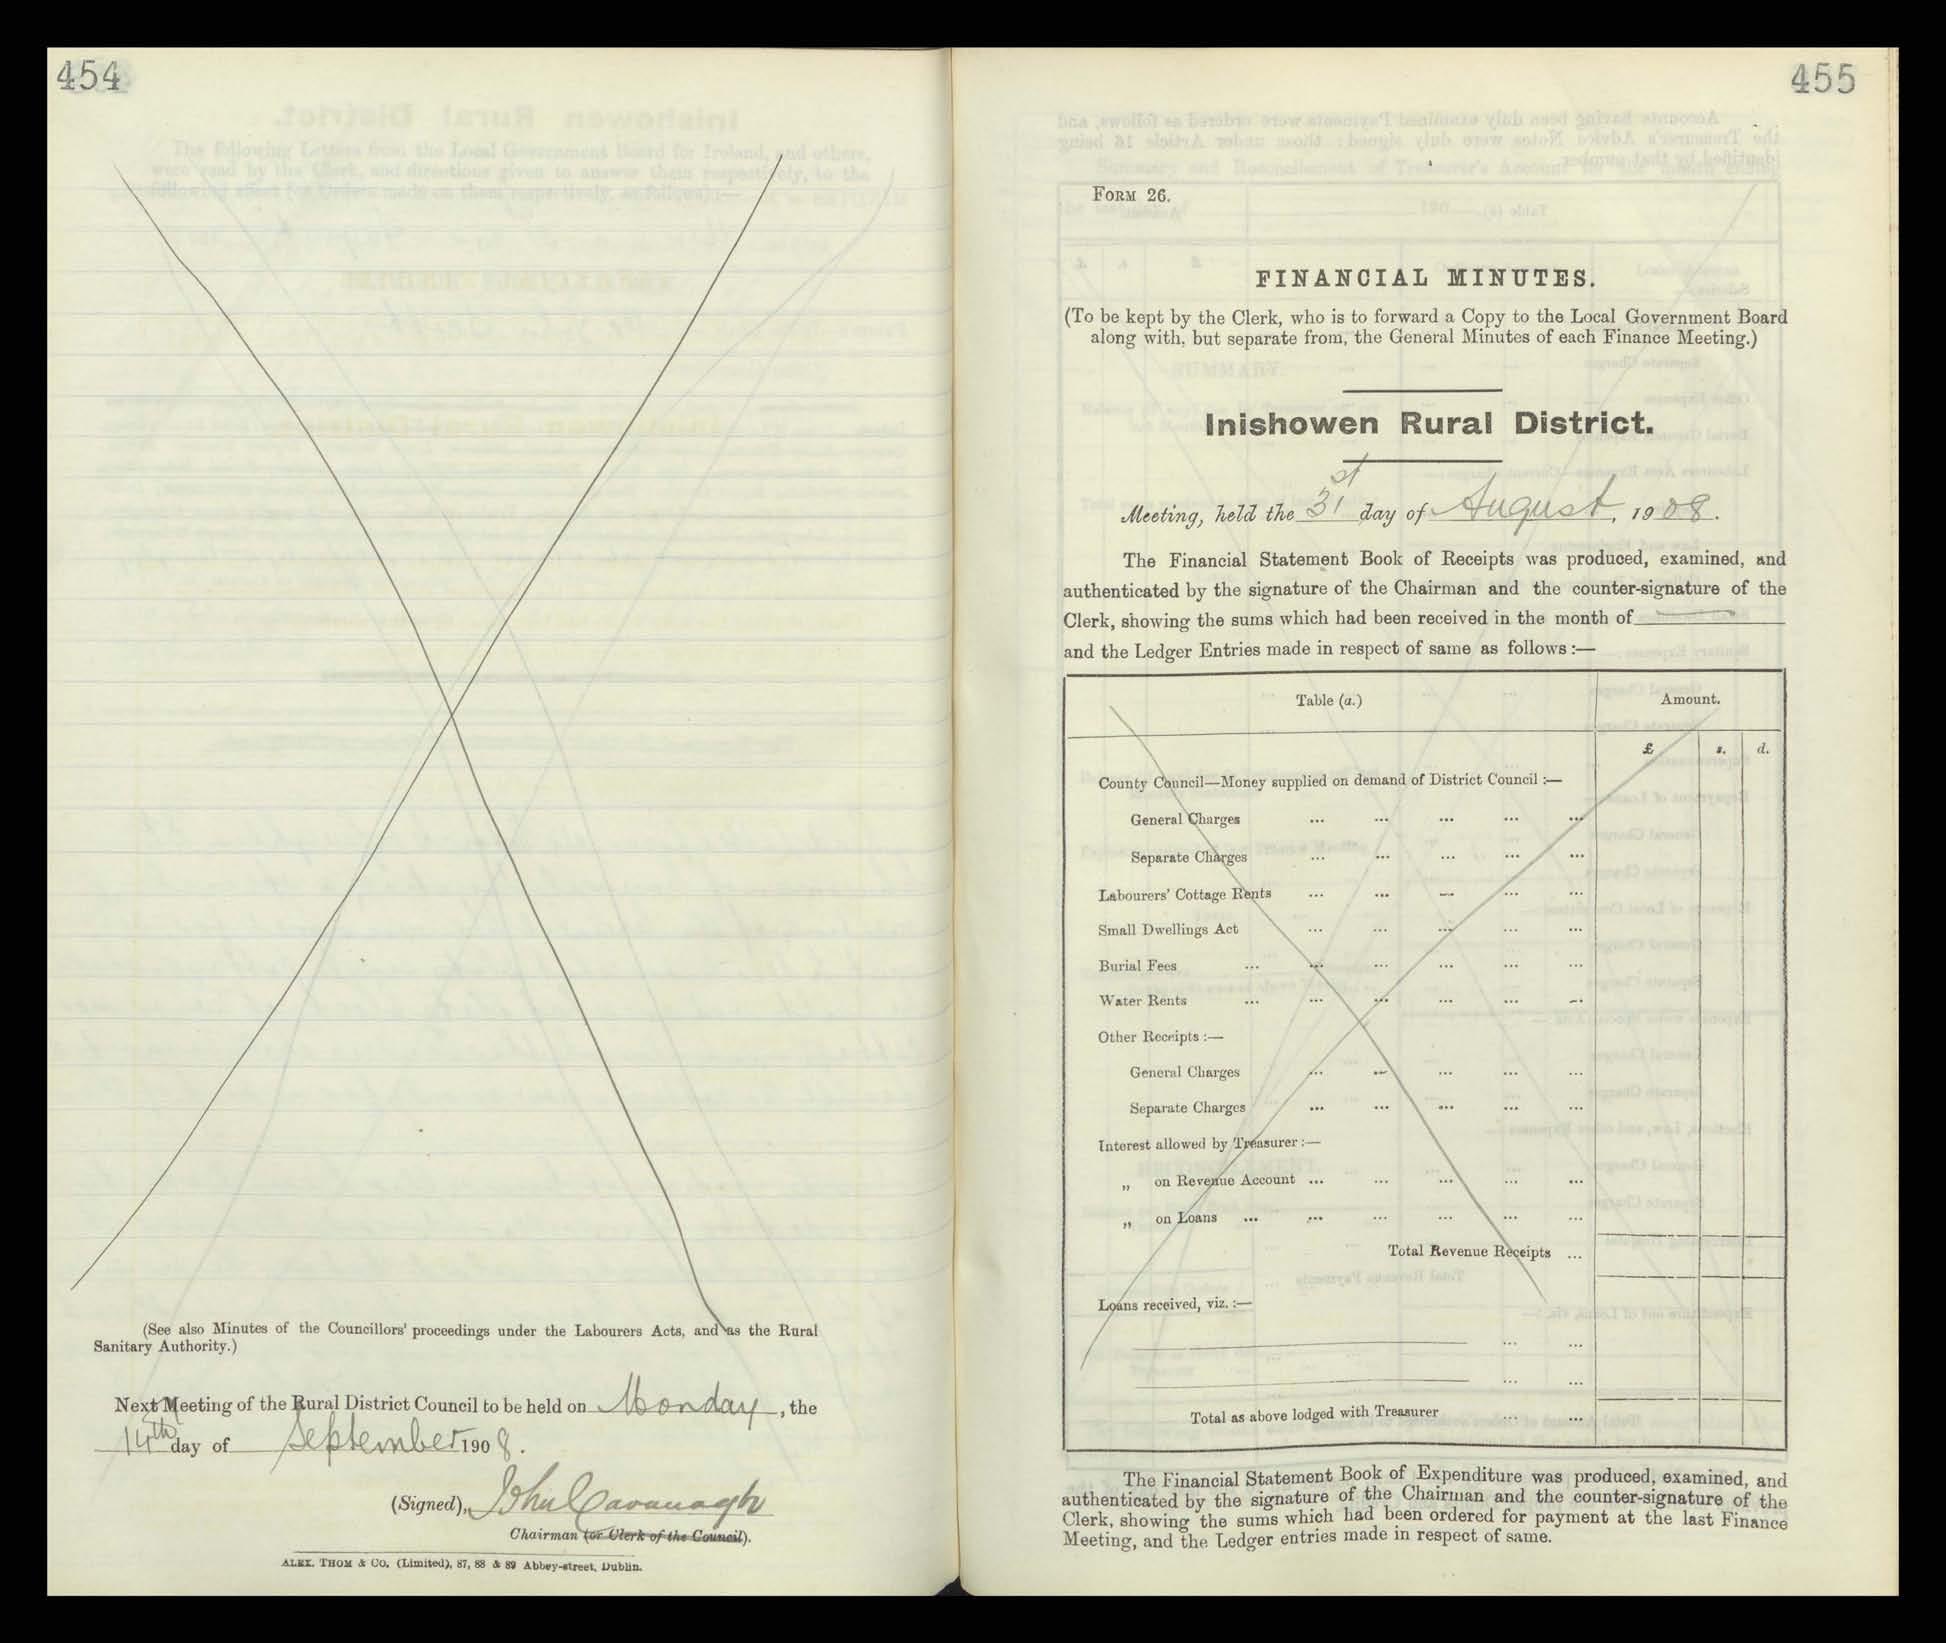 454
(See also Minutes of the Councillors' proceedings under the Labourers Acts, and as the Rural
Sanitary Authority.)
Next Meeting of the Rural District Council to be held on Monday, the
14th day of September 1908.
(Signed), John Cavanagh
Chairman (or Clerk of the Council).
ALEX. THOM & CO. (Limited), 87, 88 & 89 Abbey-street, Dublin.
455
FORM 26.
FINANCIAL MINUTES.
(To be kept by the Clerk, who is to forward a Copy to the Local Government Board
along with, but separate from, the General Minutes of each Finance Meeting.)
Inishowen Rural District.
Meeting, held the 31st day of August, 1908.
The Financial Statement Book of Receipts was produced, examined, and
authenticated by the signature of the Chairman and the counter-signature of the
Clerk, showing the sums which had been received in the month of
and the Ledger Entries made in respect of same as follows :—
Table (a.) Amount.
£ s. d.
County Council—Money supplied on demand of District Council :—
General Charges ... ... ... ... ...
Separate Charges ... ... ... ... ...
Labourers' Cottage Rents ... ... ... ... ...
Small Dwellings Act ... ... ... ... ...
Burial Fees ... ... ... ... ... ...
Water Rents ... ... ... ... ... ...
Other Receipts :—
General Charges ... ... ... ... ...
Separate Charges ... ... ... ... ...
Interest allowed by Treasurer :—
„ on Revenue Account ... ... ... ... ...
„ on Loans ... ... ... ... ... ...
Total Revenue Receipts ...
Loans received, viz. :—
... ...
... ...
Total as above lodged with Treasurer ... ...
The Financial Statement Book of Expenditure was produced, examined, and
authenticated by the signature of the Chairman and the counter-signature of the
Clerk, showing the sums which had been ordered for payment at the last Finance
Meeting, and the Ledger entries made in respect of same.